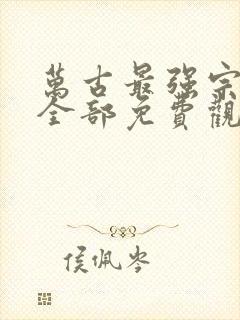 萬古最强宗
全部免費觀
侯佩岑